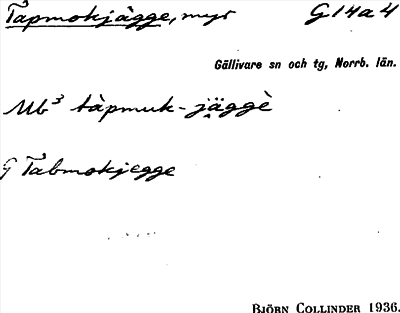 Tapmokjägge, myr G14a4
Gällivare sn och tg, Norrb. län.
Ub³ tàpmuk-jäggè
G Tabmokjegge
BJÖRN COLLINDER 1936.